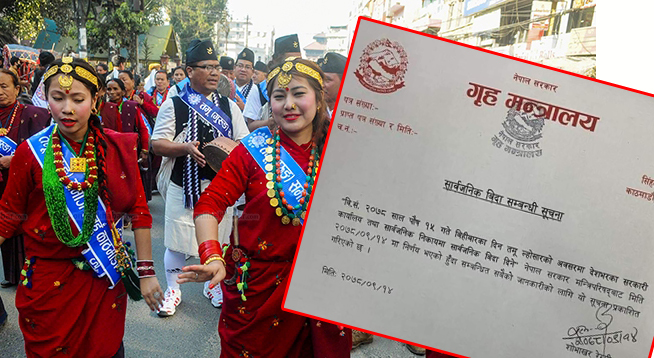 नेपाल सरकार
गृह मन्त्रालय
गृह मन्त्रालय
पत्र सख्या:-
प्राप्त पत्र सख्या र मिति:-
च.नं.:-
सिंह
सार्वजनिक बिदा सम्बन्धी सूचना
"बि.सं. २०७८ साल पौष १५ गते बिहीबारका दिन तमू ल्होसारको अवसरमा देशभरका सरकारी
कार्यालय तथा सार्वजनिक निकायमा सार्वजनिक बिदा दिने" नेपाल सरकार मन्त्रिपरिषद्‌बाट मिति
२०७८/०९/१४ मा निर्णय भएको हुँदा सम्बन्धित सबैको जानकारीको लागि यो सूचना प्रकाशित
गरिएको छ ।
मिति: २०७८/०९/१४
२०७८/०९/१४